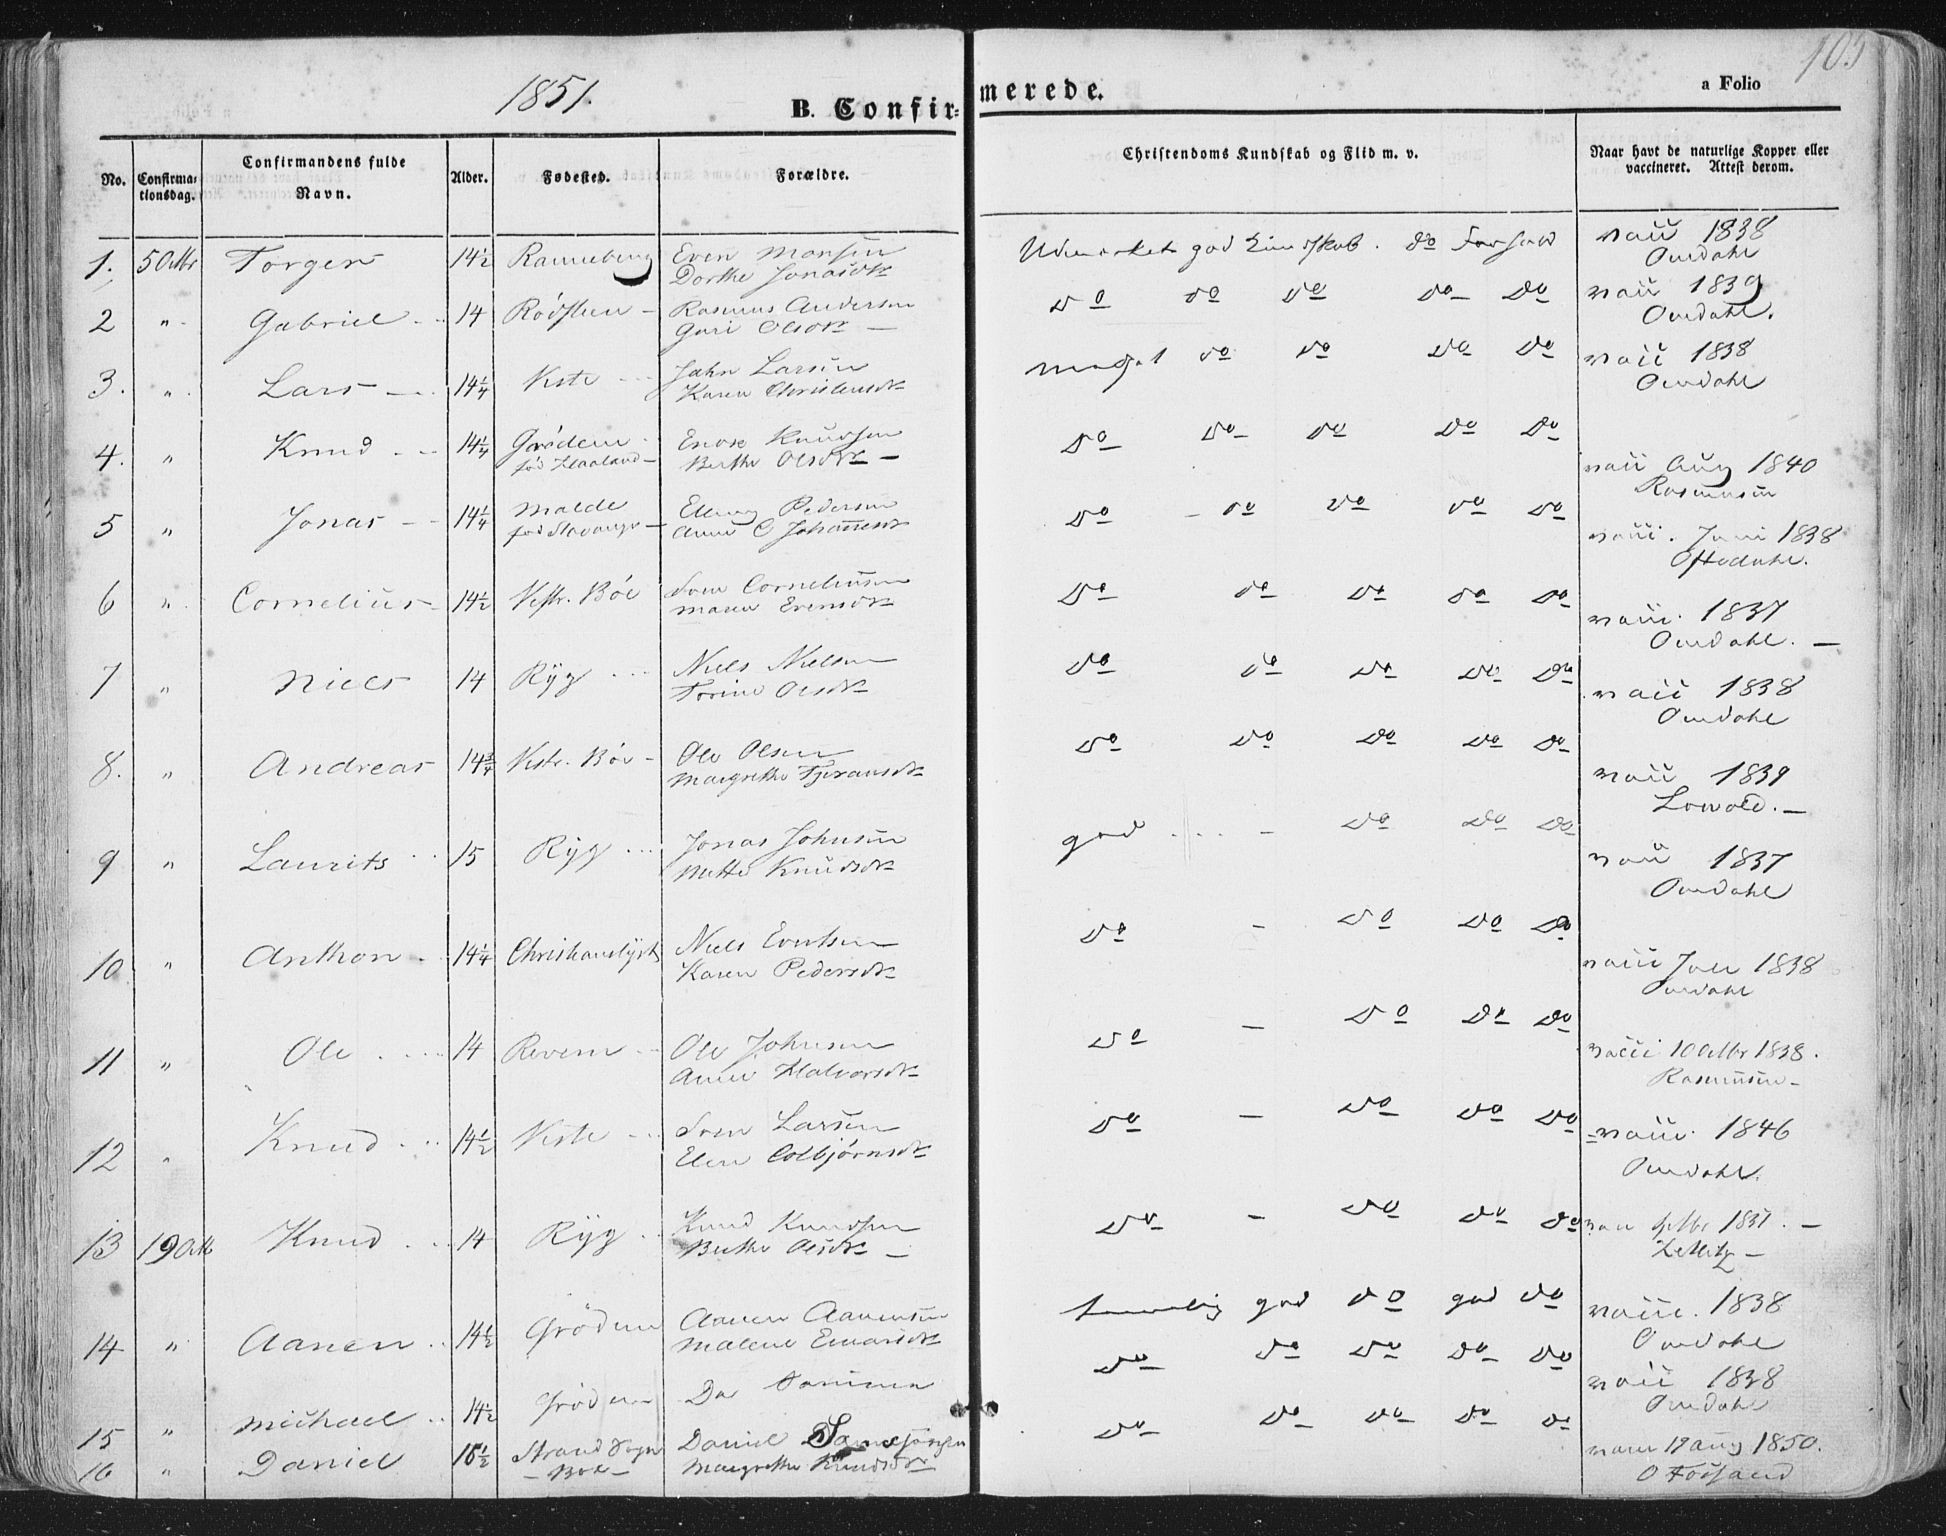 1851.
105
B. Confir=
merede.
a Folio
No.
Confirma=
tionsdag.
Confirmandens fulde
Navn.
Alder.
Fødested.
Forældre.
Christendoms Kundskab og Flid m. v.
Naar havt de naturlige Kopper eller
vaccineret. Attest derom.
1. 5 Octbr Torger 14½ Ranneberg Even Monsen
Dorthe Jonasdtr
Udmærket god Kundskab. do Forhold
vacc 1838
Omdahl
2 " Gabriel 14 Rasmus Andersen
Guri Olsdtr
do do do do do
vacc 1839
Omdahl.
3. " Lars 14¼ Viste John Larsen
Karen Christensdtr
meget do do do do
vacc 1838
Omdahl
4. " Knud 14¼ Grødem Knudsen
fød Haaland Berthe Olsdtr
do do do do do
vacc Aug 1840
Rasmusen
5 " Jonas 14¼ Malde Elling Pedersen
fød Stavanger Anne C Johannesdtr
do do do do do
vacc. Juni 1838
Oftedahl.
6 " Cornelius 14½ Vestr. Bøe Sven Corneliussen
Maren Evensdtr
do do do do do
vacc. 1837
Omdahl.
7 " Niels 14 Ryg Niels Nielsen
Torine Olsdtr
do do do do do
vacc 1838
Omdahl
8. " Andreas 14¾ Vestr. Bøe Ole Olsen
Margrethe Tjeransdtr
do do do do do
vacc 1839
Lowold.
9 " Laurits 15 Ryg Jonas Johnsen
Mette Knudsdtr
god do do do
vacc 1837
Omdahl
10 " Anthon 14¼ Christianslyst Niels Evertsen
Karen Pedersdtr
do - do do do
vacc Juli 1838
Omdahl
11 " Ole 14 Revem Ole Johnsen
Anne Halvorsdtr
do - do do do
vacc 10 Octbr 1838.
Rasmusen
12 " Knud 14½ Viste Sven Larsen
Elen Colbjørnsdtr
do - do do do
vacc. 1846
Omdahl.
13 19 Octb Knud 14 Ryg Knud Knudsen
Berthe Olsdtr
do - do do do
1837.
Zetlitz
14 " Aanen 14½ Grødem Aanen Aanensen
Malene Einarsdtr
temmelig god do god do
vacc. 1838
Omdahl
15 " Michael 14½ Grødem De Samme
do do do do do
vacc 1838
Omdahl
16 " Daniel 16½ Strand Sogn Daniel
Margrethe Knudsdtr
do do do do do
vacc 19 Aug 1850.
O Forsand